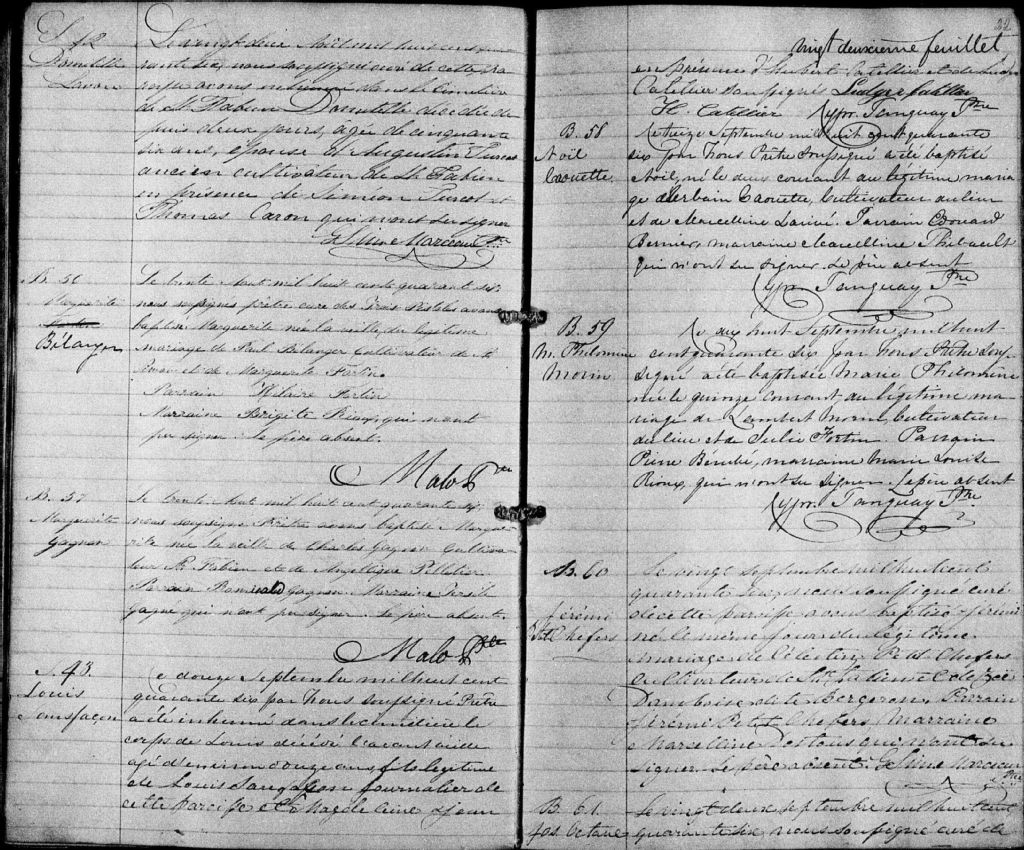 S. 42
Domitille
Lavoie
Le vingt deux Août mil huit cent qua-
rante six, nous soussigné curé de cette pa
roisse avons inhumé dans le cimetière
de St. Fabien Domitille décédée de
puis deux jours, agée de cinquante
six ans, épouse d'Augustin Turcot
ancien cultivateur de St. Fabien
en présence de Siméon Turcot et
Thomas Caron qui n'ont su signer
Marceau Ptre
B. 56
Marguerite
Bélanger
Le trente Aout mil huit cent quarante six
nous soussignés prêtre curé des Trois Pistoles avons
baptisé Marguerite née la veille du légitime
mariage de Paul Bélanger Cultivateur de St
Simon et de Marguerite Fortin
Parrain Hilaire Fortin
Marraine Brigite Rioux, qui n'ont
pu signer. le père absent.
Malo Ptre
B. 57
Marguerite
Gagnon
Le trente Aout mil huit cent quarante six
nous soussigné Prêtre avons baptisé Margue
rite née la veille de Charles Gagnon Cultiva-
teur St. Fabien et de Angélique Pelletier
Parrain Romuald Gagnon Marraine
Gagné qui n'ont pu signer. le père absent.
Malo Ptre
S. 43.
Louis
Sansfaçon
Le douze Septembre mil huit cent
quarante six par Nous soussigné Prêtre
a été inhumé dans le cimetière le
corps de Louis décédé l'avant veille
agé d'environ douze ans, fils légitime
de Louis Sansfaçon journalier de
cette Paroisse & de Magdeleine
22
vingt deuxième feuillet
en présence d'Hubert Catellier et de
Catellier soussignés
H. Catellier Cypr. Tanguay Ptre
B. 58
Noël
Caouette.
Le treize Septembre mil huit cent quarante
six par Nous Prêtre soussigné a été baptisé
Noël, né le deux courant du légitime maria
ge d'Urbain Caouette, Cultivateur du lieu
et de Marcelline Parrain Edouard
Bernier, marraine Marcelline Thibault
qui n'ont su signer. Le père absent
Cypr. Tanguay Ptre
B. 59
M. Philomène
Morin
Le dix huit Septembre, mil huit
cent quarante six par Nous Prêtre sous-
signé a été baptisée Marie Philomène
née le quinze courant du légitime ma-
riage de Lambert Morin, Cultivateur
du lieu et de Julie Fortin. Parrain
Pierre Bérubé, marraine Marie Louise
Rioux, qui n'ont su signer. Le père absent
Cypr. Tanguay Ptre
B. 60
Jérémi
Ptit Chefers
Le vingt Septembre mil huit cent
quarante six, nous soussigné curé
de cette paroisse avons baptisé Jérémi
né le même jour du légitime
mariage de Célestin Petit Chefers
cultivateur de St. Fabien &
Damboise dite Bergeron. Parrain
Jérémi Petit Chefers Marraine
Marcelline tous qui n'ont su
signer. Le père absent. Marceau
Ptre
B. 61.
Jos. Octave
Le vingt deux septembre mil huit cent
quarante six, nous soussigné curé de